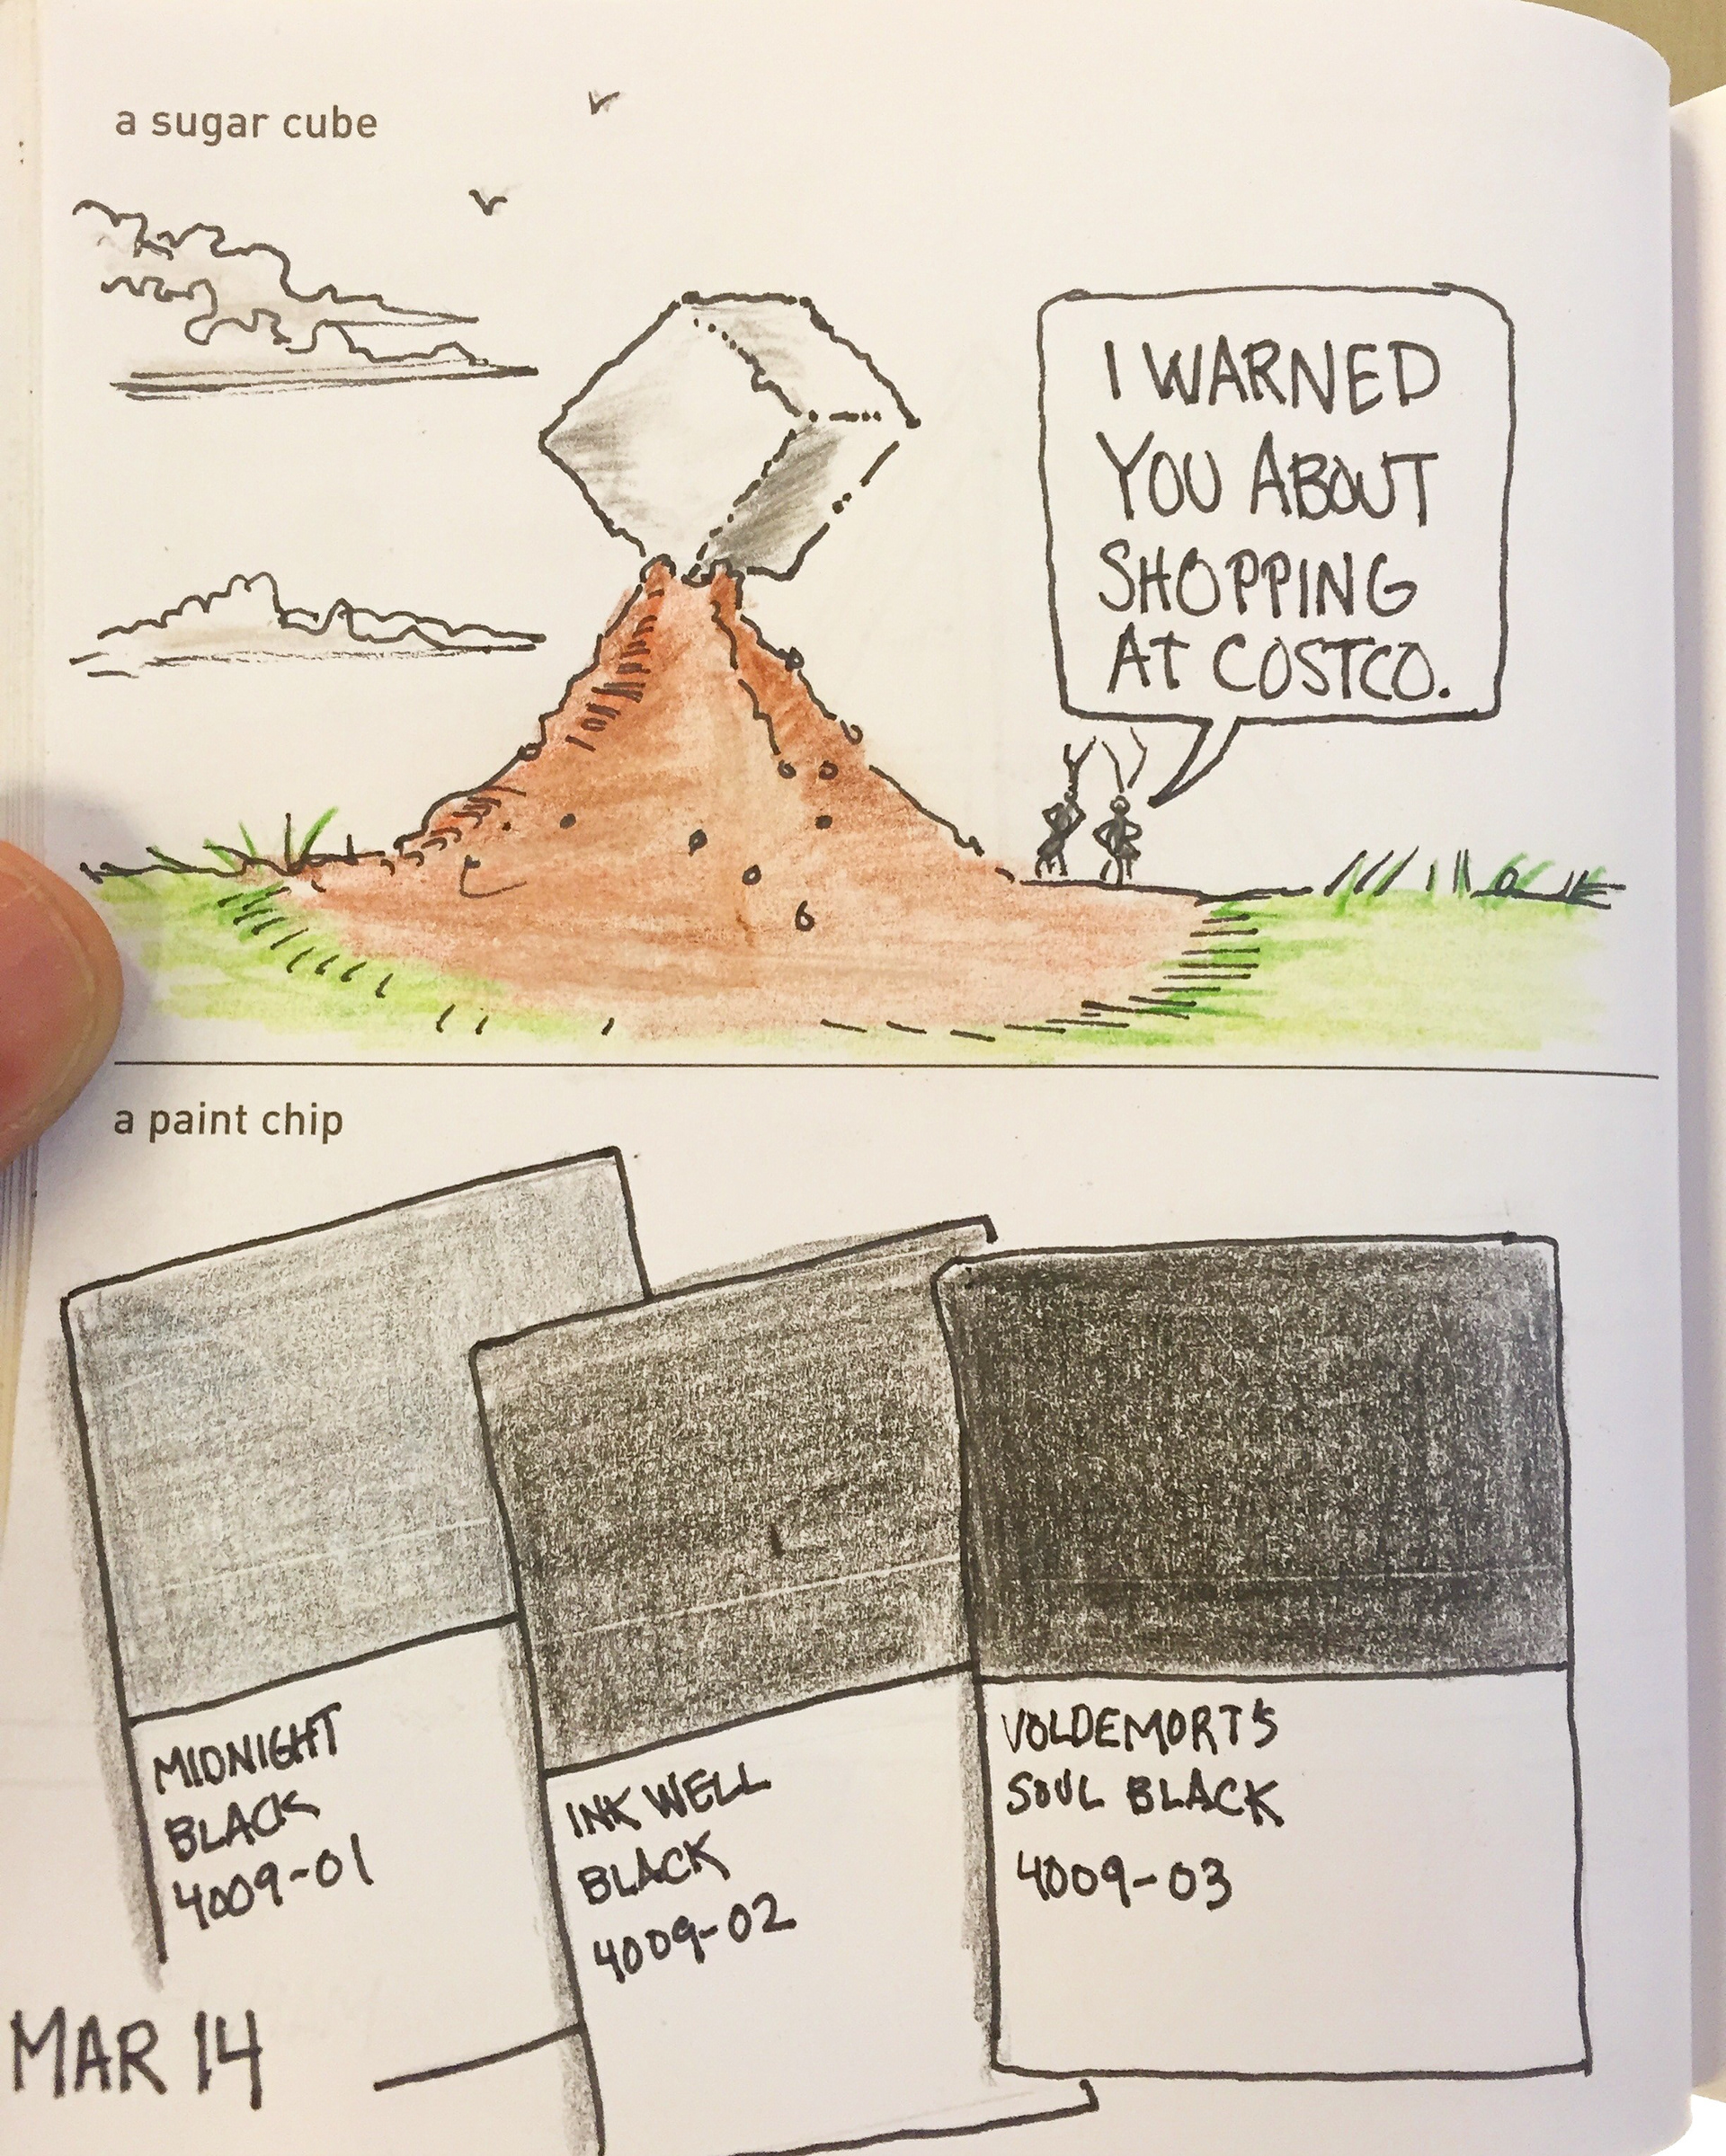 a sugar cube
I WARNED
YOU ABOUT
SHOPPING
AT COSTCO.
a paint chip
MIDNIGHT
BLACK
4009-01
INK WELL
BLACK
4009-02
VOLDEMORT'S
SOUL BLACK
4009-03
MAR 14